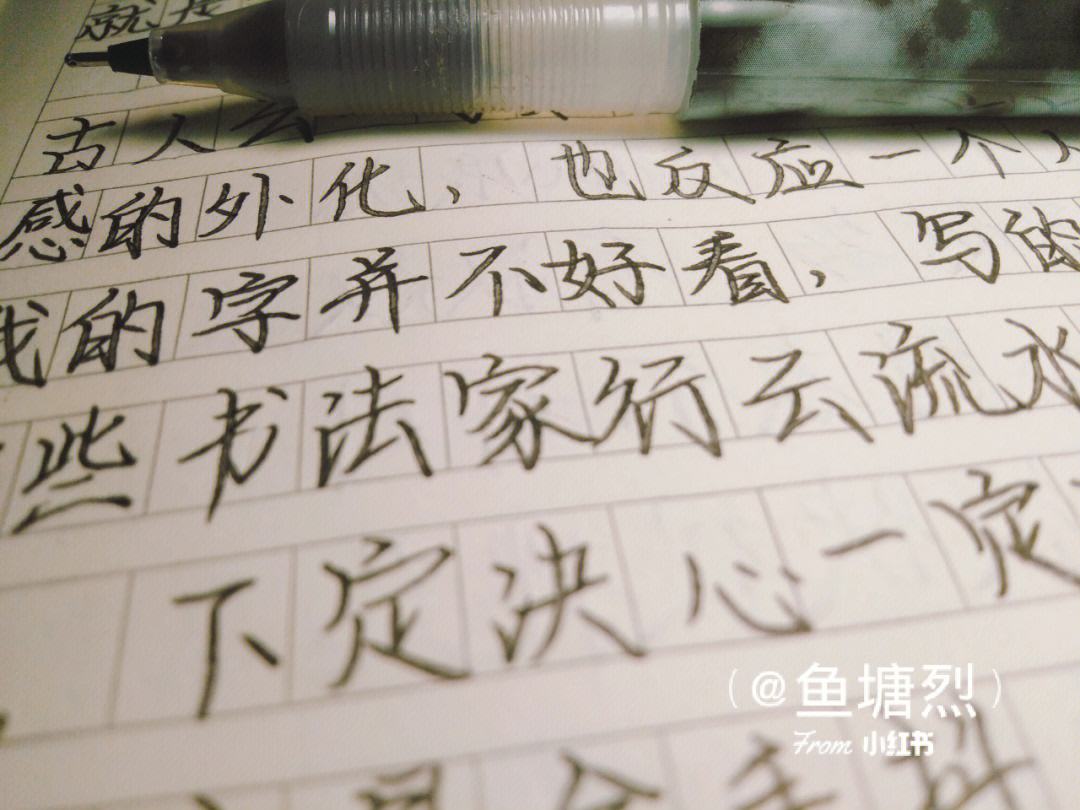 就是
古人云
感的外化，也反应一个人
我的字并不好看，写的
些书法家行云流水
下定决心一定
(@鱼塘烈)
From 小红书